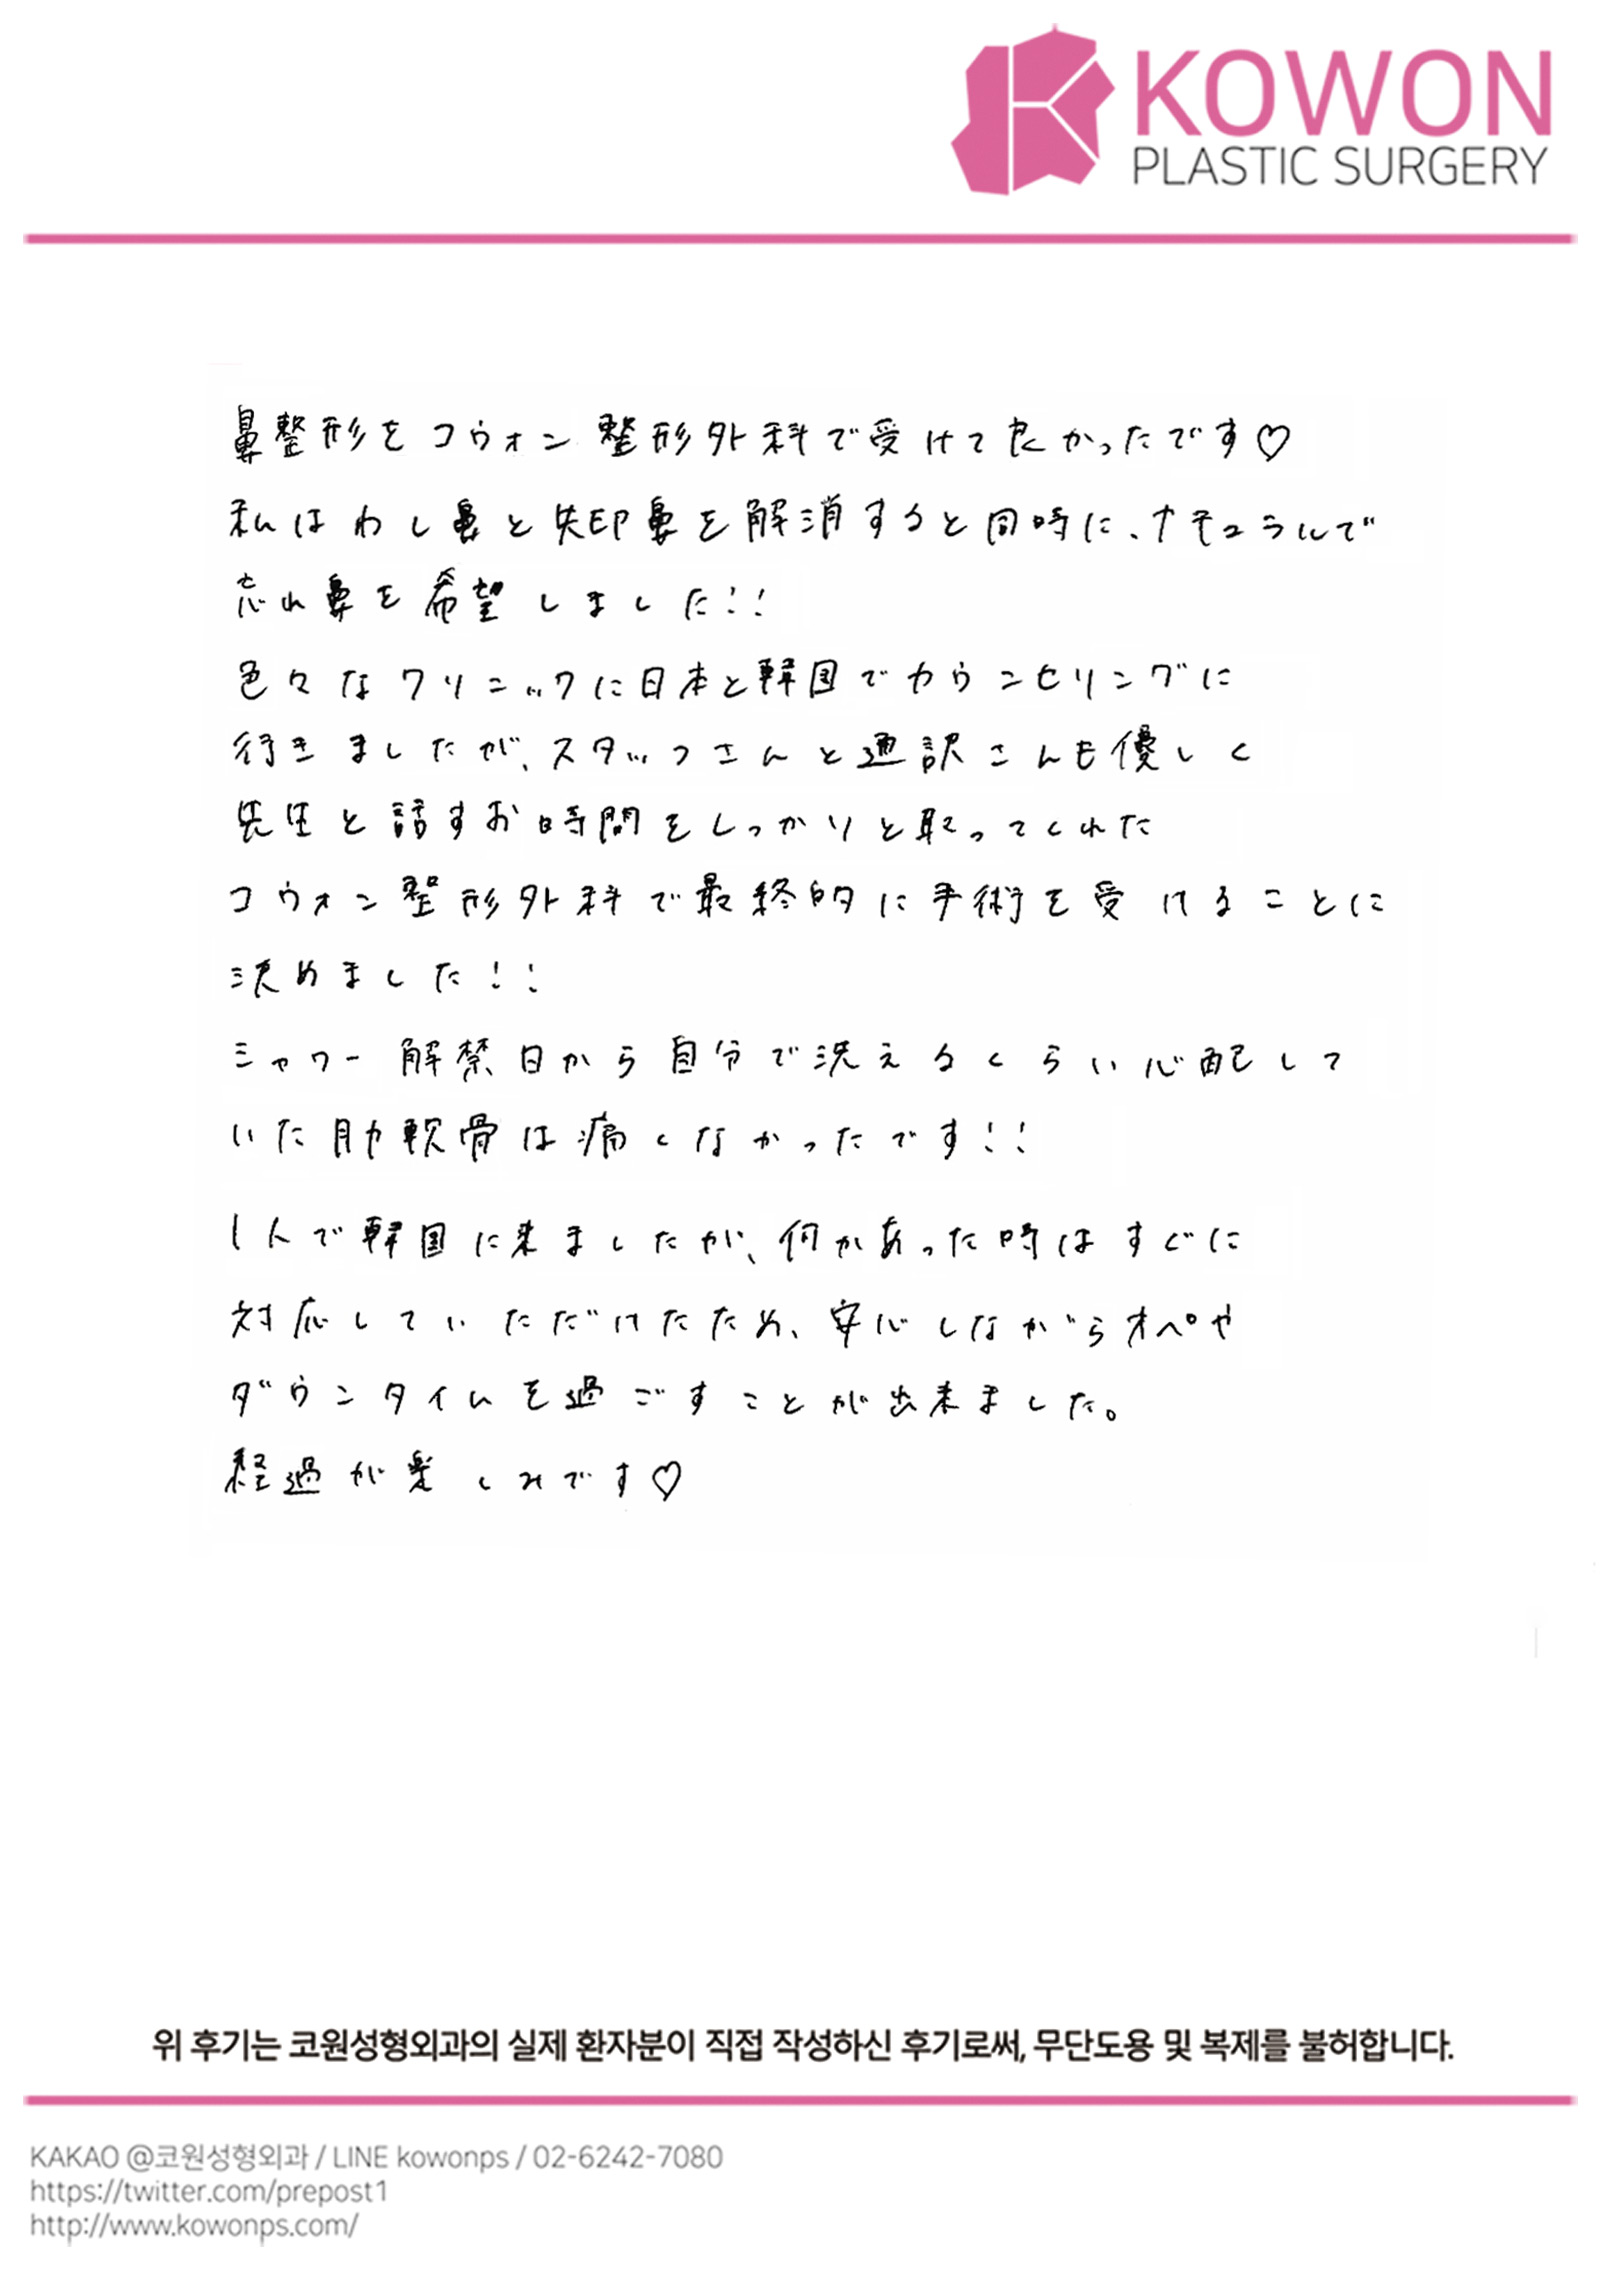 KOWON
PLASTIC SURGERY
鼻整形をコウォン整形外科で受けて良かったです♡
私はわし鼻と矢印鼻を解消すると同時に、ナチュラルで
忘れ鼻を希望しました!!
色々なクリニックに日本と韓国でカウンセリングに
行きましたが、スタッフさんと通訳さんも優しく
先生と話すお時間をしっかりと取ってくれた
コウォン整形外科で最終的に手術を受けることに
決めました!!
シャワー解禁日から自分で洗えるくらい心配して
いた肋軟骨は痛くなかったです!!
1人で韓国に来ましたが、何かあった時はすぐに
対応していただけたため、安心しながらオペや
ダウンタイムを過ごすことが出来ました。
経過が楽しみです♡
위 후기는 코원성형외과의 실제 환자분이 직접 작성하신 후기로써, 무단도용 및 복제를 불허합니다.
KAKAO @코원성형외과 / LINE kowonps / 02-6242-7080
https://twitter.com/prepost1
http://www.kowonps.com/